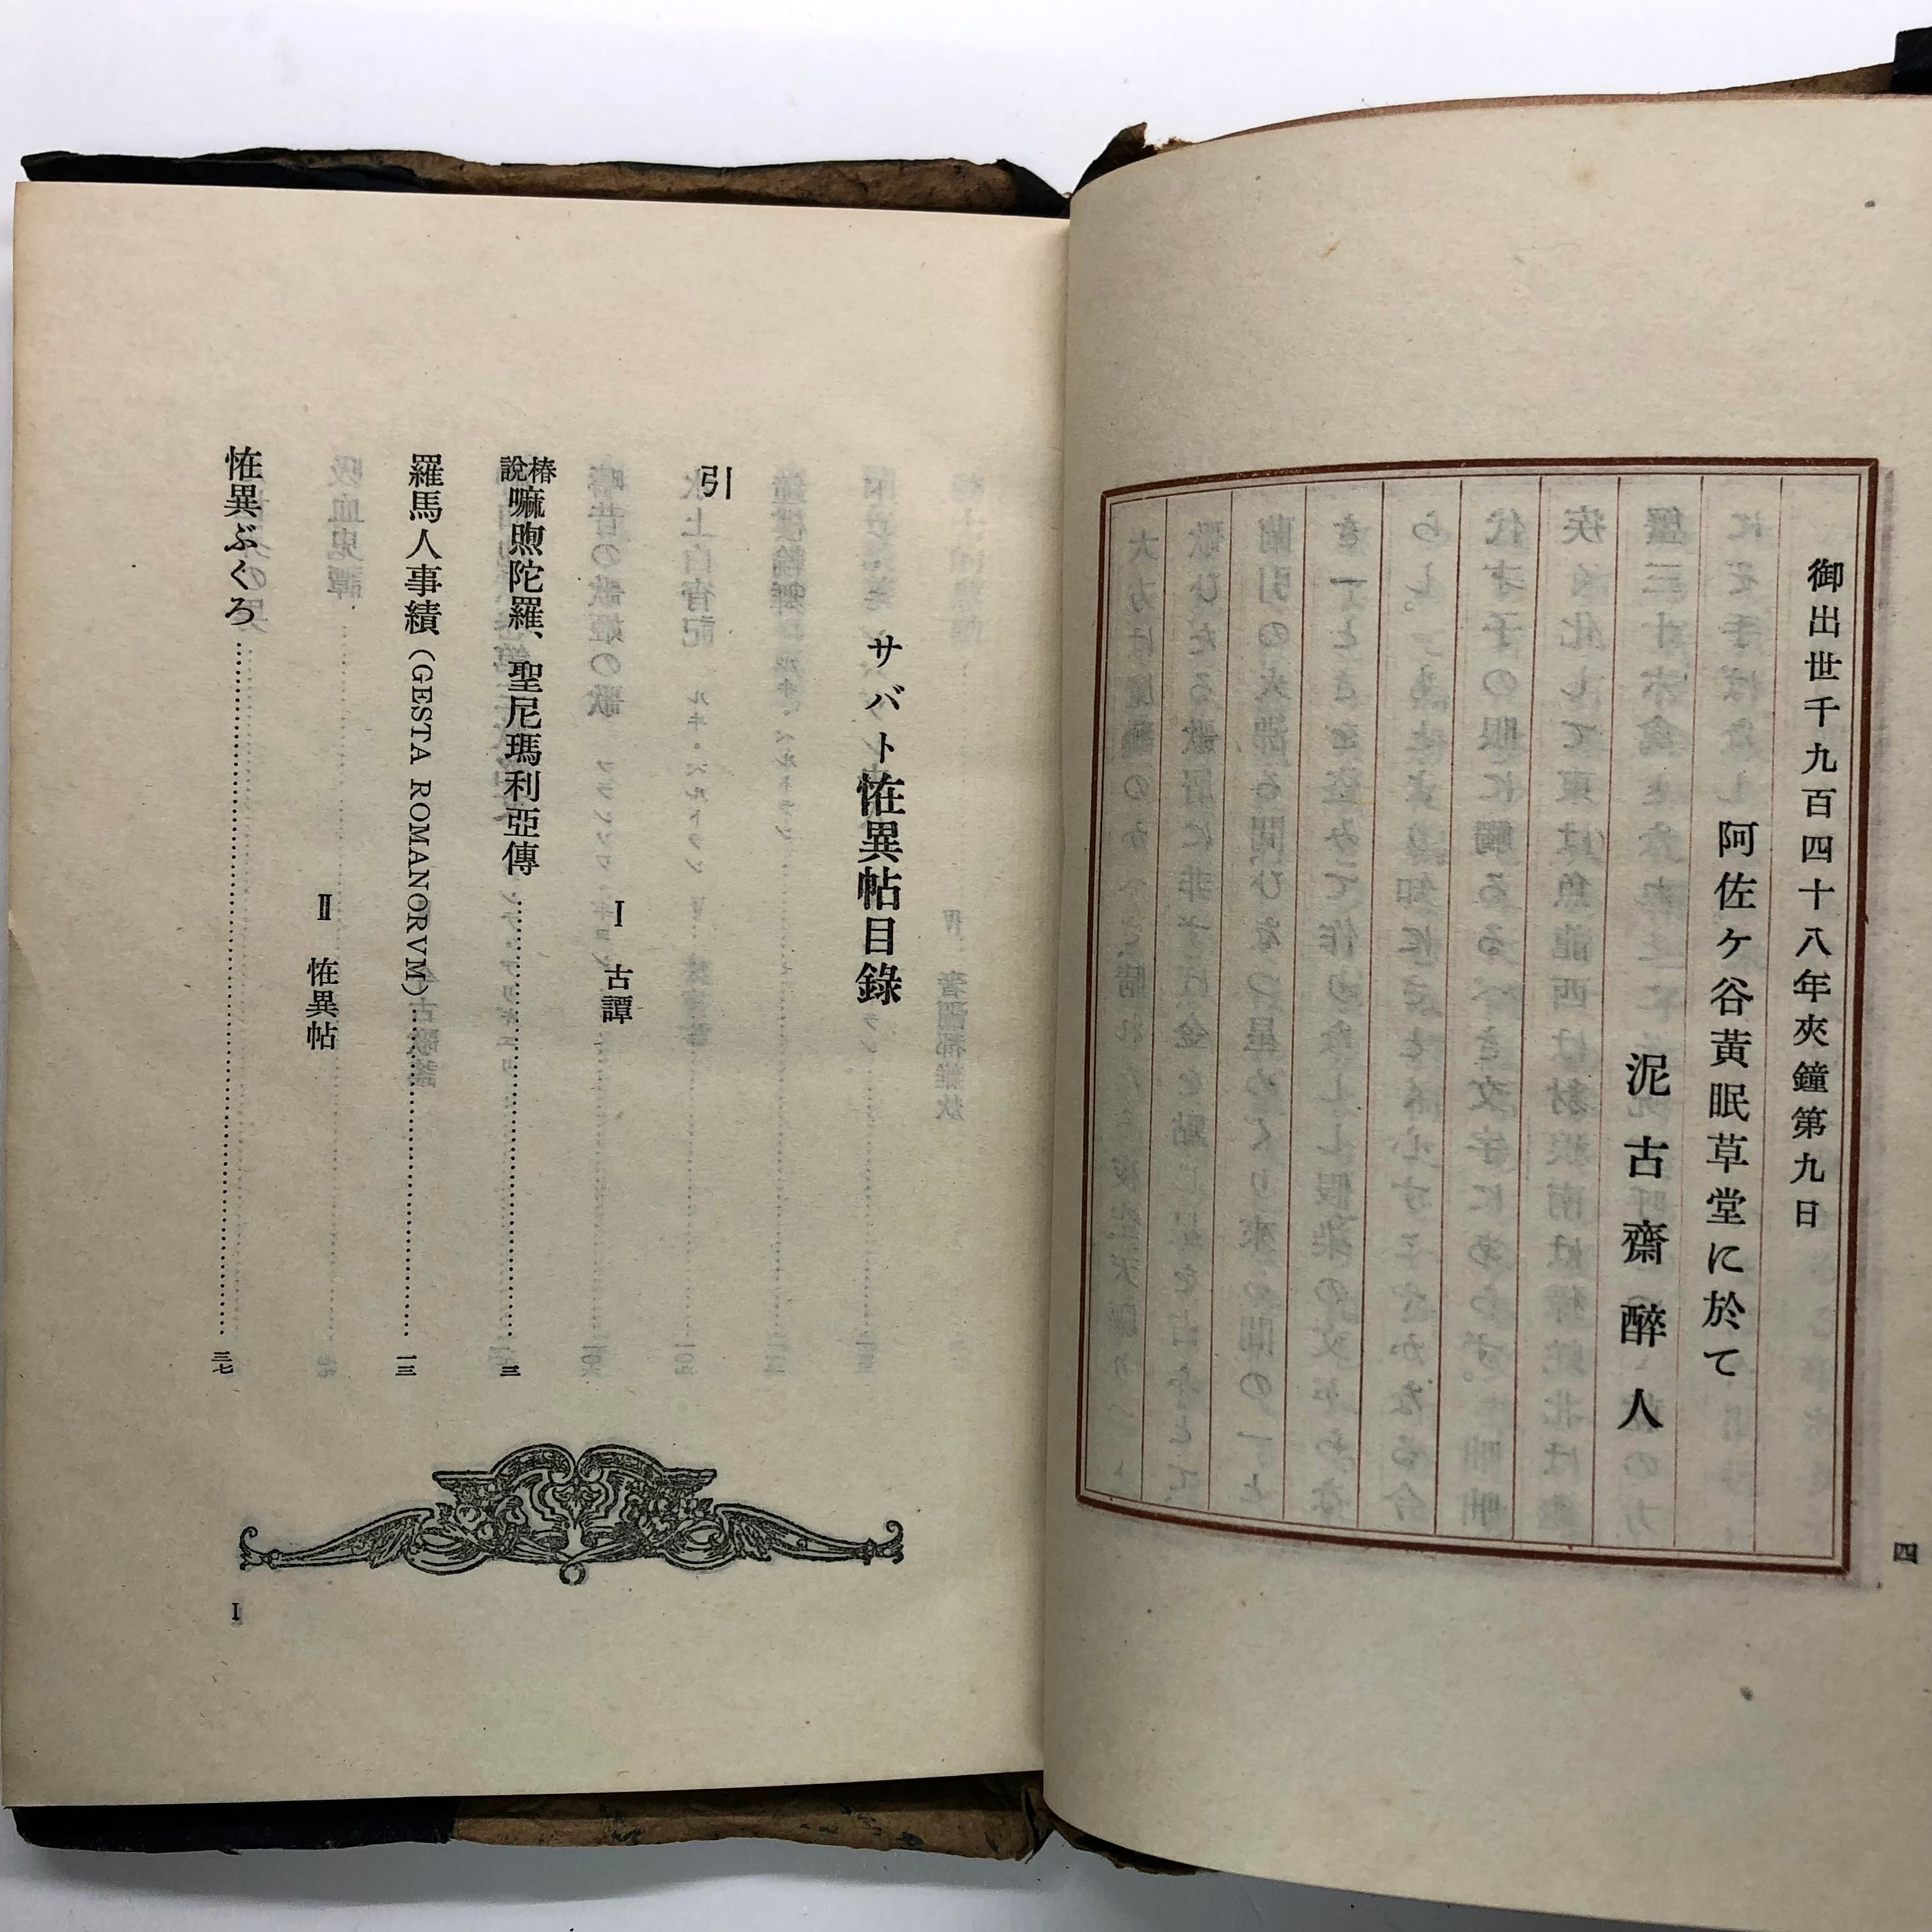 御出世千九百四十八年夾鐘第九日
阿佐ケ谷黃眠草堂に於て
泥古齋醉人
四
サバト恠異帖目錄
引
I 古譚
椿說嘛煦陀羅、聖尼瑪利亞傳………三
羅馬人事績(GESTA ROMANORVM)………一三
II 恠異帖
恠異ぶくろ………三七
I